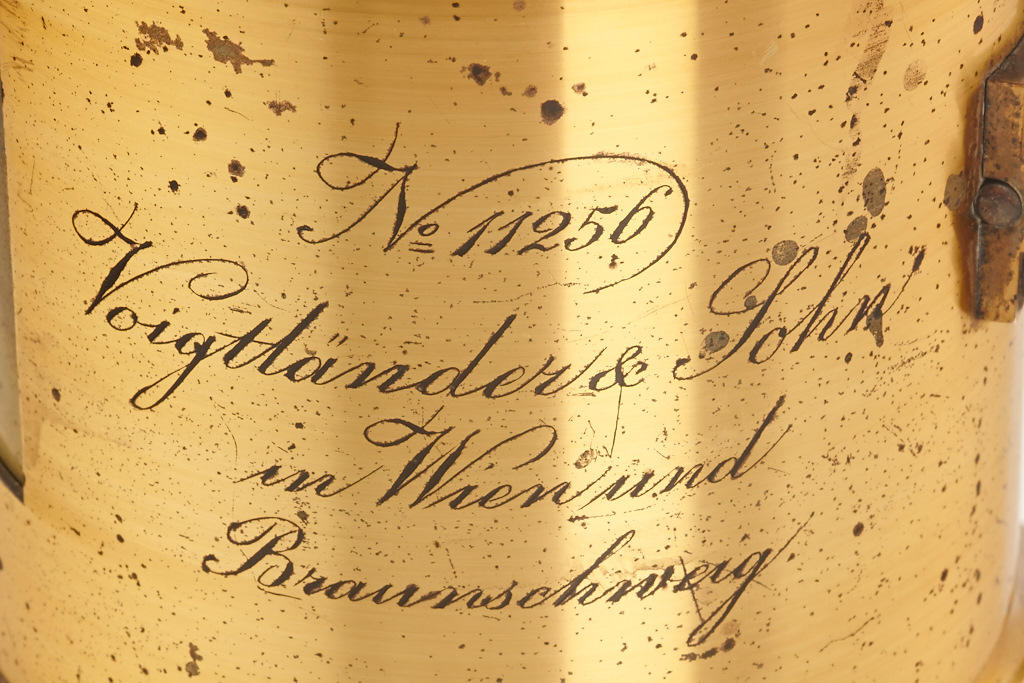 No 11256
Voigtländer & Sohn
in Wien und
Braunschweig